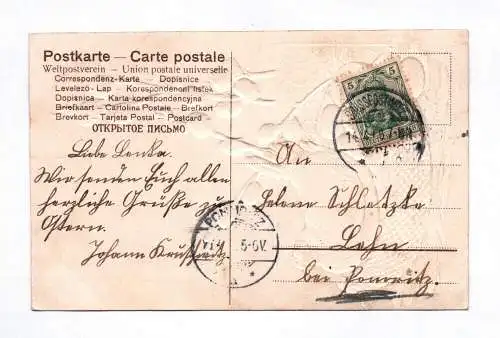 Postkarte — Carte postale
Weltpostverein - Union postale universelle
Correspondenz-Karte — Dopisnice
Levelező-Lap — Korespondenční lístek
Dopisnica — Karta korespondencyjna
Briefkaart — Cartolina Postale — Brefkort
Brevkort — Tarjeta Postal — Postcard
ОТКРЫТОЕ ПИСЬМО
Liebe Lenka.
Wir senden Euch allen
herzliche Grüße zu
Ostern.
Johann
5
5
5-6V.
An
Helene Schletzke
Lehn
bei Pomritz.